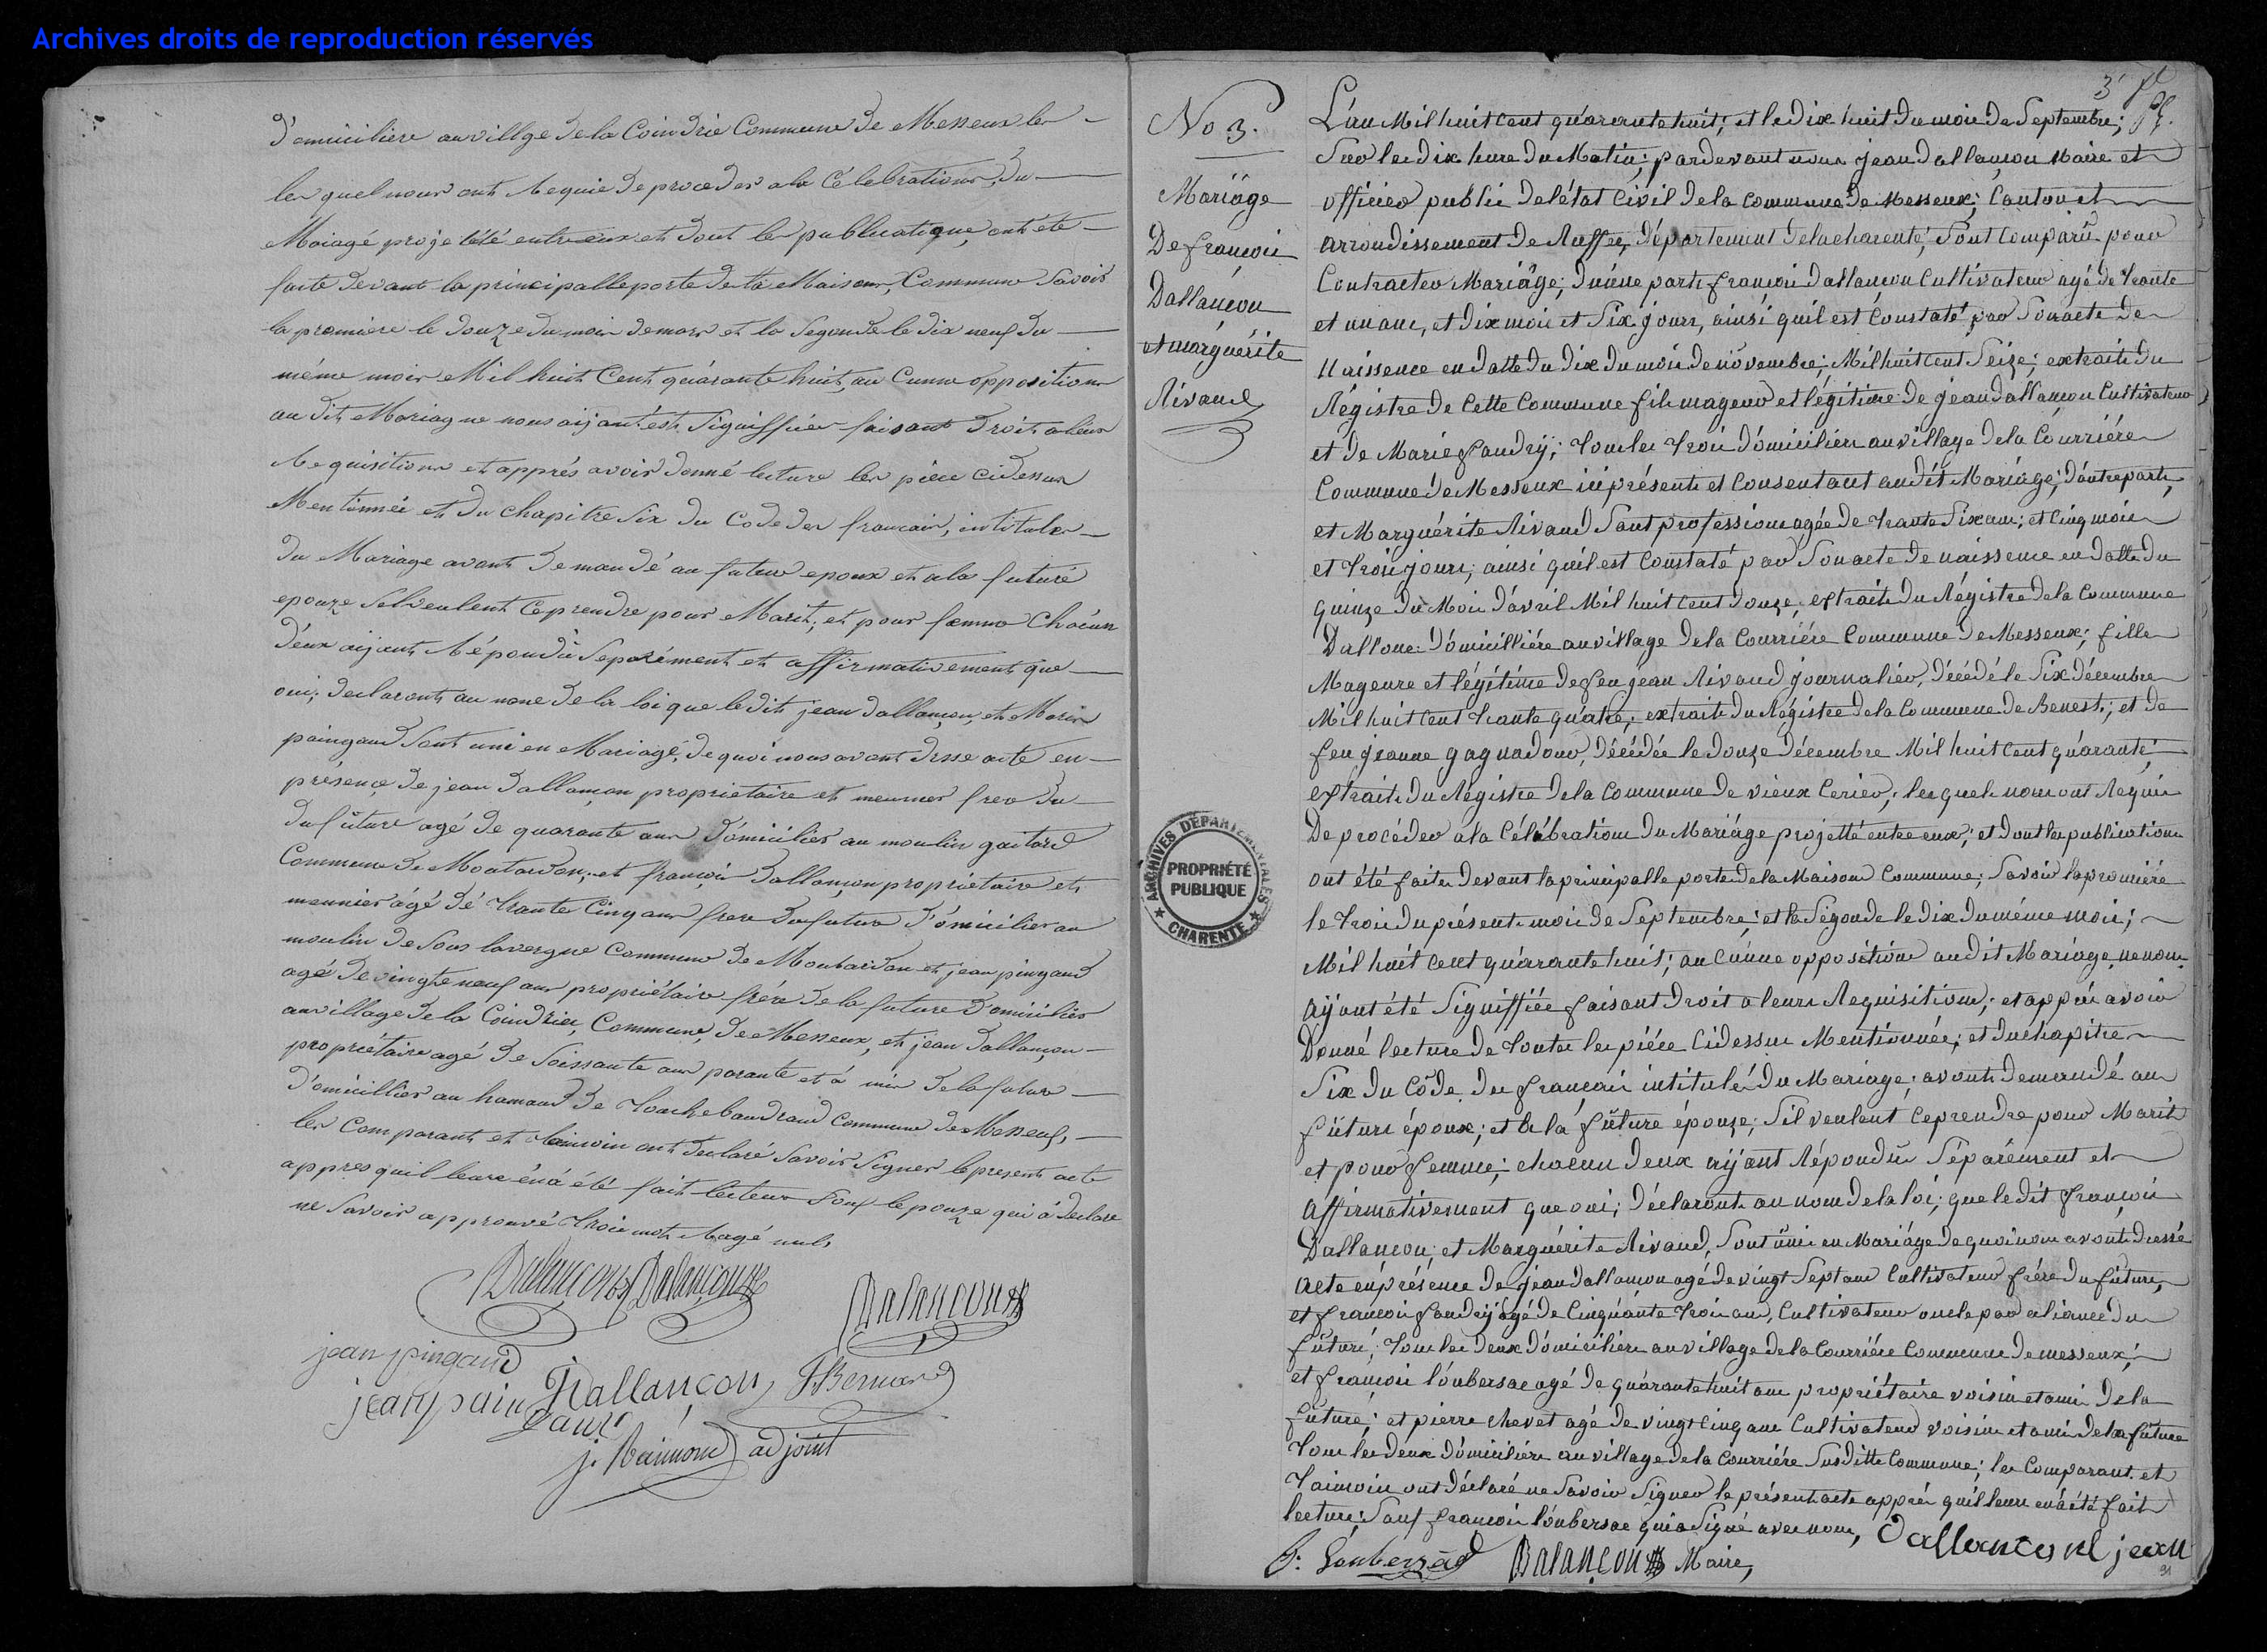 Archives droits de reproduction réservés
d'omiciliere au villge de la Coindrie Commune de Messeux les
les quel nous ont Requie de proceder a la Célebrations du
Maiagé projetété entre eux et dont les publicatique ont été
faite devant la principalle porte de la Maison, Commune Savoir
la premiere le douze du mois de mars et la Segonde le dix neuf du
même mois Mil huit Cent quárante huit, au Cunne oppositions
au dit Mariag ne nous aijant ést Signiffiér faisant Droit a leurs
Requisitions et apprés avoir donné lecture les piece cidessus
Mentionnéé et du chapitre Six du Code des francais, intitules
du Mariage avons demandé au futur epoux et a la futuré
epouze Sil veulent Ceprendre pour Marit, et pour femme Chácun
d'eux aijant Répondû Séparément et affirmativement que
oui; declarons au nome de la loi que le dit jean dallançon et Marie
paingaud Sont uni en Mariagé, de quoi nous avons dresse acte en
présençe de jean dallançon proprietaire et meunier frer du
du fûture agé de quarante ans d'ómicilier au moulin
Commune de Montardon, et françois dallançon propriétaire et
meunier ágé dé trante Cinq ans frere du futur d'ómicilier au
moulin de Sous lavergne Commune de Montardon et jean pingaud
agé de vingte neuf ans propriétaire frére de la future d'omicilier
au village de la Coindrie, Commune, de Messeux, et jean dallançon
propriétaire agé de Soissante ans parante et á mis de la future
d'omicillier au hamaud de touchebaudraud Commune de Messeuf,
les Comparant et taimoin ont declaré Savoir Signer le present acte
appres quil leure én á été fait lecteur Souf lepouze qui á declare
ne Savoir approuvé trois mot Ragé nuls
Dalançon Dalançon
Dalançon
jean pingaud
jean pain gaud
Jdallançon
JBernard
j. Raimond adjoint
3
No 3.
Mariáge
De françois
Dallançon
et marguérite
Rivaud
L'an Mil huit Cent quárante huit; et le dix huit du mois de Septembre;
Sur les dix heure du Matin; pardevant nous jean dallançon Maire et
officier public de létat Civil de la Commune de Messeux; Canton et
arrondissement de Ruffec, département de la charente; Sont Comparû pour
Contracter Mariâge; dúúne parti françois dallançon Cultivateur agé de trante
et un ans, et dix mois et Six jours, ainsi quil est Constaté par Son acte de
Naissence en datte du dix du mois de novembre; Mil huit Cent Seize; extraite du
Régistre de Cette Commune fils mageur et légitime de jean dallançon Cultivateur
et de Marie faudrÿ; tous les trois d'omiciliers au village de la Courriére
Commune de Messeux ici présents et Consentant au dit Mariágé; d'autre parti,
et Marguérite Rivaud Sant profession agée de trante Six ans; et Cinq mois
et trois jours; ainsi quil est Constaté par Son acte de naissence en datte du
quinze du Mois d'avril Mil huit Cent douze; extraite du Régistre de la Commune
Dalloue d'omicilliére au village de la Courriére Commune de Messeux; fille
Mageure et légitime de feu jean Rivaud journaliér, décédé le Six décembre
Mil huit Cent trante quatre; extraite du Régistre de la Commune de Benest; et de
feu jeanne gagnadour, décédée le douze décembre Mil huit Cent quárante;
extraite du Régistre de la Commune de vieux Cerier; les quels nous ont Requis
De procéder a la Célébration du Mariáge projetté entre eux; et dont les publications
ont été faites devant la principalle porte de la Maison Commune; Savoir la premiére
le trois du présent mois de Septembre; et la Ségonde le dix du méme mois;
Mil huit Cent quárante huit; au Cúnne opposition au dit Mariage ne nous
aijant été Signiffiée faisant droit a leurs Requisitions; et apprés avoir
Donné lecture de toutes les piéce Cidessus Mentionnée; et du chapitre
Six du Côde des français intitulé du Mariage; avons demandé au
fûture époux; et a la fûture épouze; Sil veulent Ceprendre pour Marit
et pour femme; chacun deux aijant Répondû Séparément et
affirmativement que oui; déclarons au nom de la loi; que le dit françois
Dallançon; et Marguérite Rivaud, Sont ûni en Mariáge de quoi nous avons dressé
acte en présence de jean dallançon agé de vingt Sept ans Cultivateur frére du fûture
et françois faudrij agé de Cinquante trois ans, Cultivateur oncle par aliance du
fûturé; tous les deux d'omiciliére au village de la Courriére Commune de messeux;
et françois loubersac agé de quárante huit ans propriétaire voisin et ami de la
fûture; et pierre chevet agé de vingt Cinq ans Cultivateur voisin et ami de la fûture
tous les deux d'omiciliére au village de la Courriére Susditte Commune; les Comparant et
taimoin ont déclaré ne Savoir Signer le présent acte apprés quil leure en á été fait
lecture; Sauf françois loubersac qui a Signé avec nous,
f: Loubersac Dalançon Maire, dallançon jean
ARCHIVES DÉPARTEMENTALES
PROPRIÉTÉ
PUBLIQUE
★ CHARENTE ★